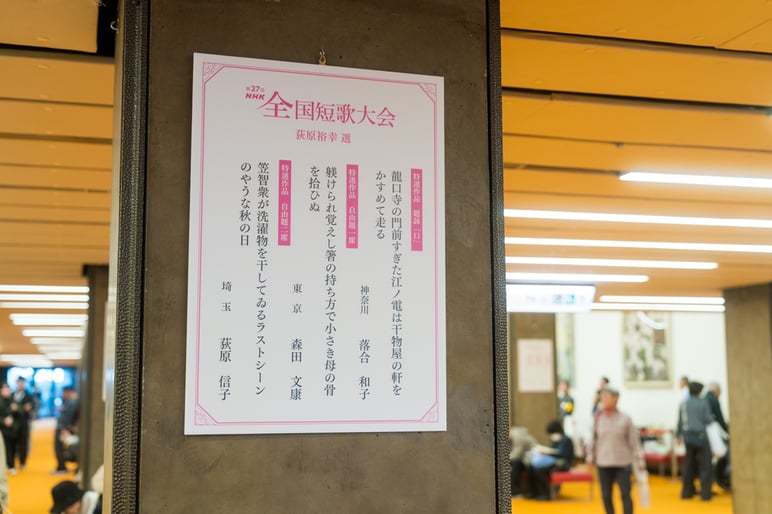 第27回
NHK
全国短歌大会
荻原裕幸 選
特選作品 題詠「口」
龍口寺の門前すぎた江ノ電は干物屋の軒を
かすめて走る
神奈川 落合 和子
特選作品 自由題一席
躾けられ覚えし箸の持ち方で小さき母の骨
を拾ひぬ
東京 森田 文康
特選作品 自由題二席
笠智衆が洗濯物を干してゐるラストシーン
のやうな秋の日
埼玉 荻原 信子